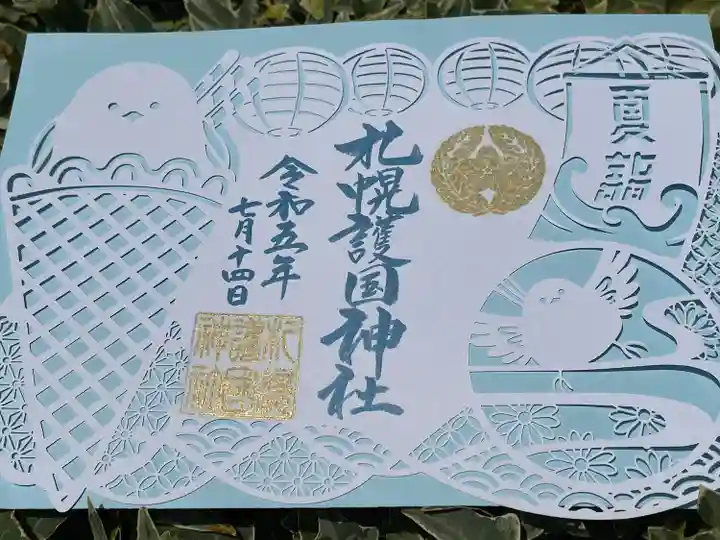 夏詣
札幌護国神社
令和五年
七月十四日
札幌護国神社